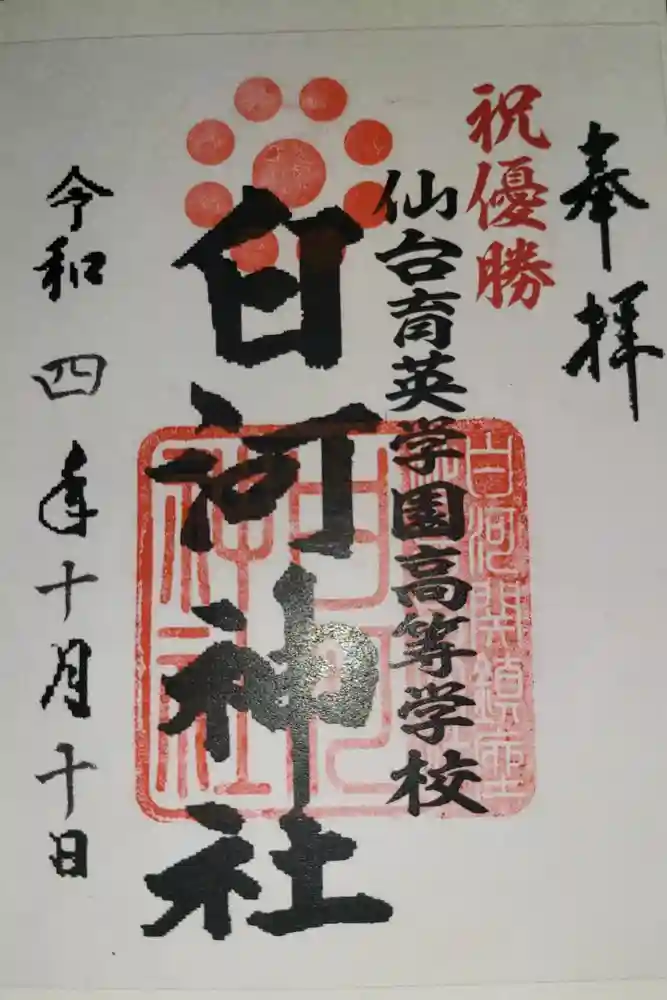 奉拝
祝優勝
仙台育英学園高等学校
白河神社
白河関鎮座
白河
神社
令和四年十月十日